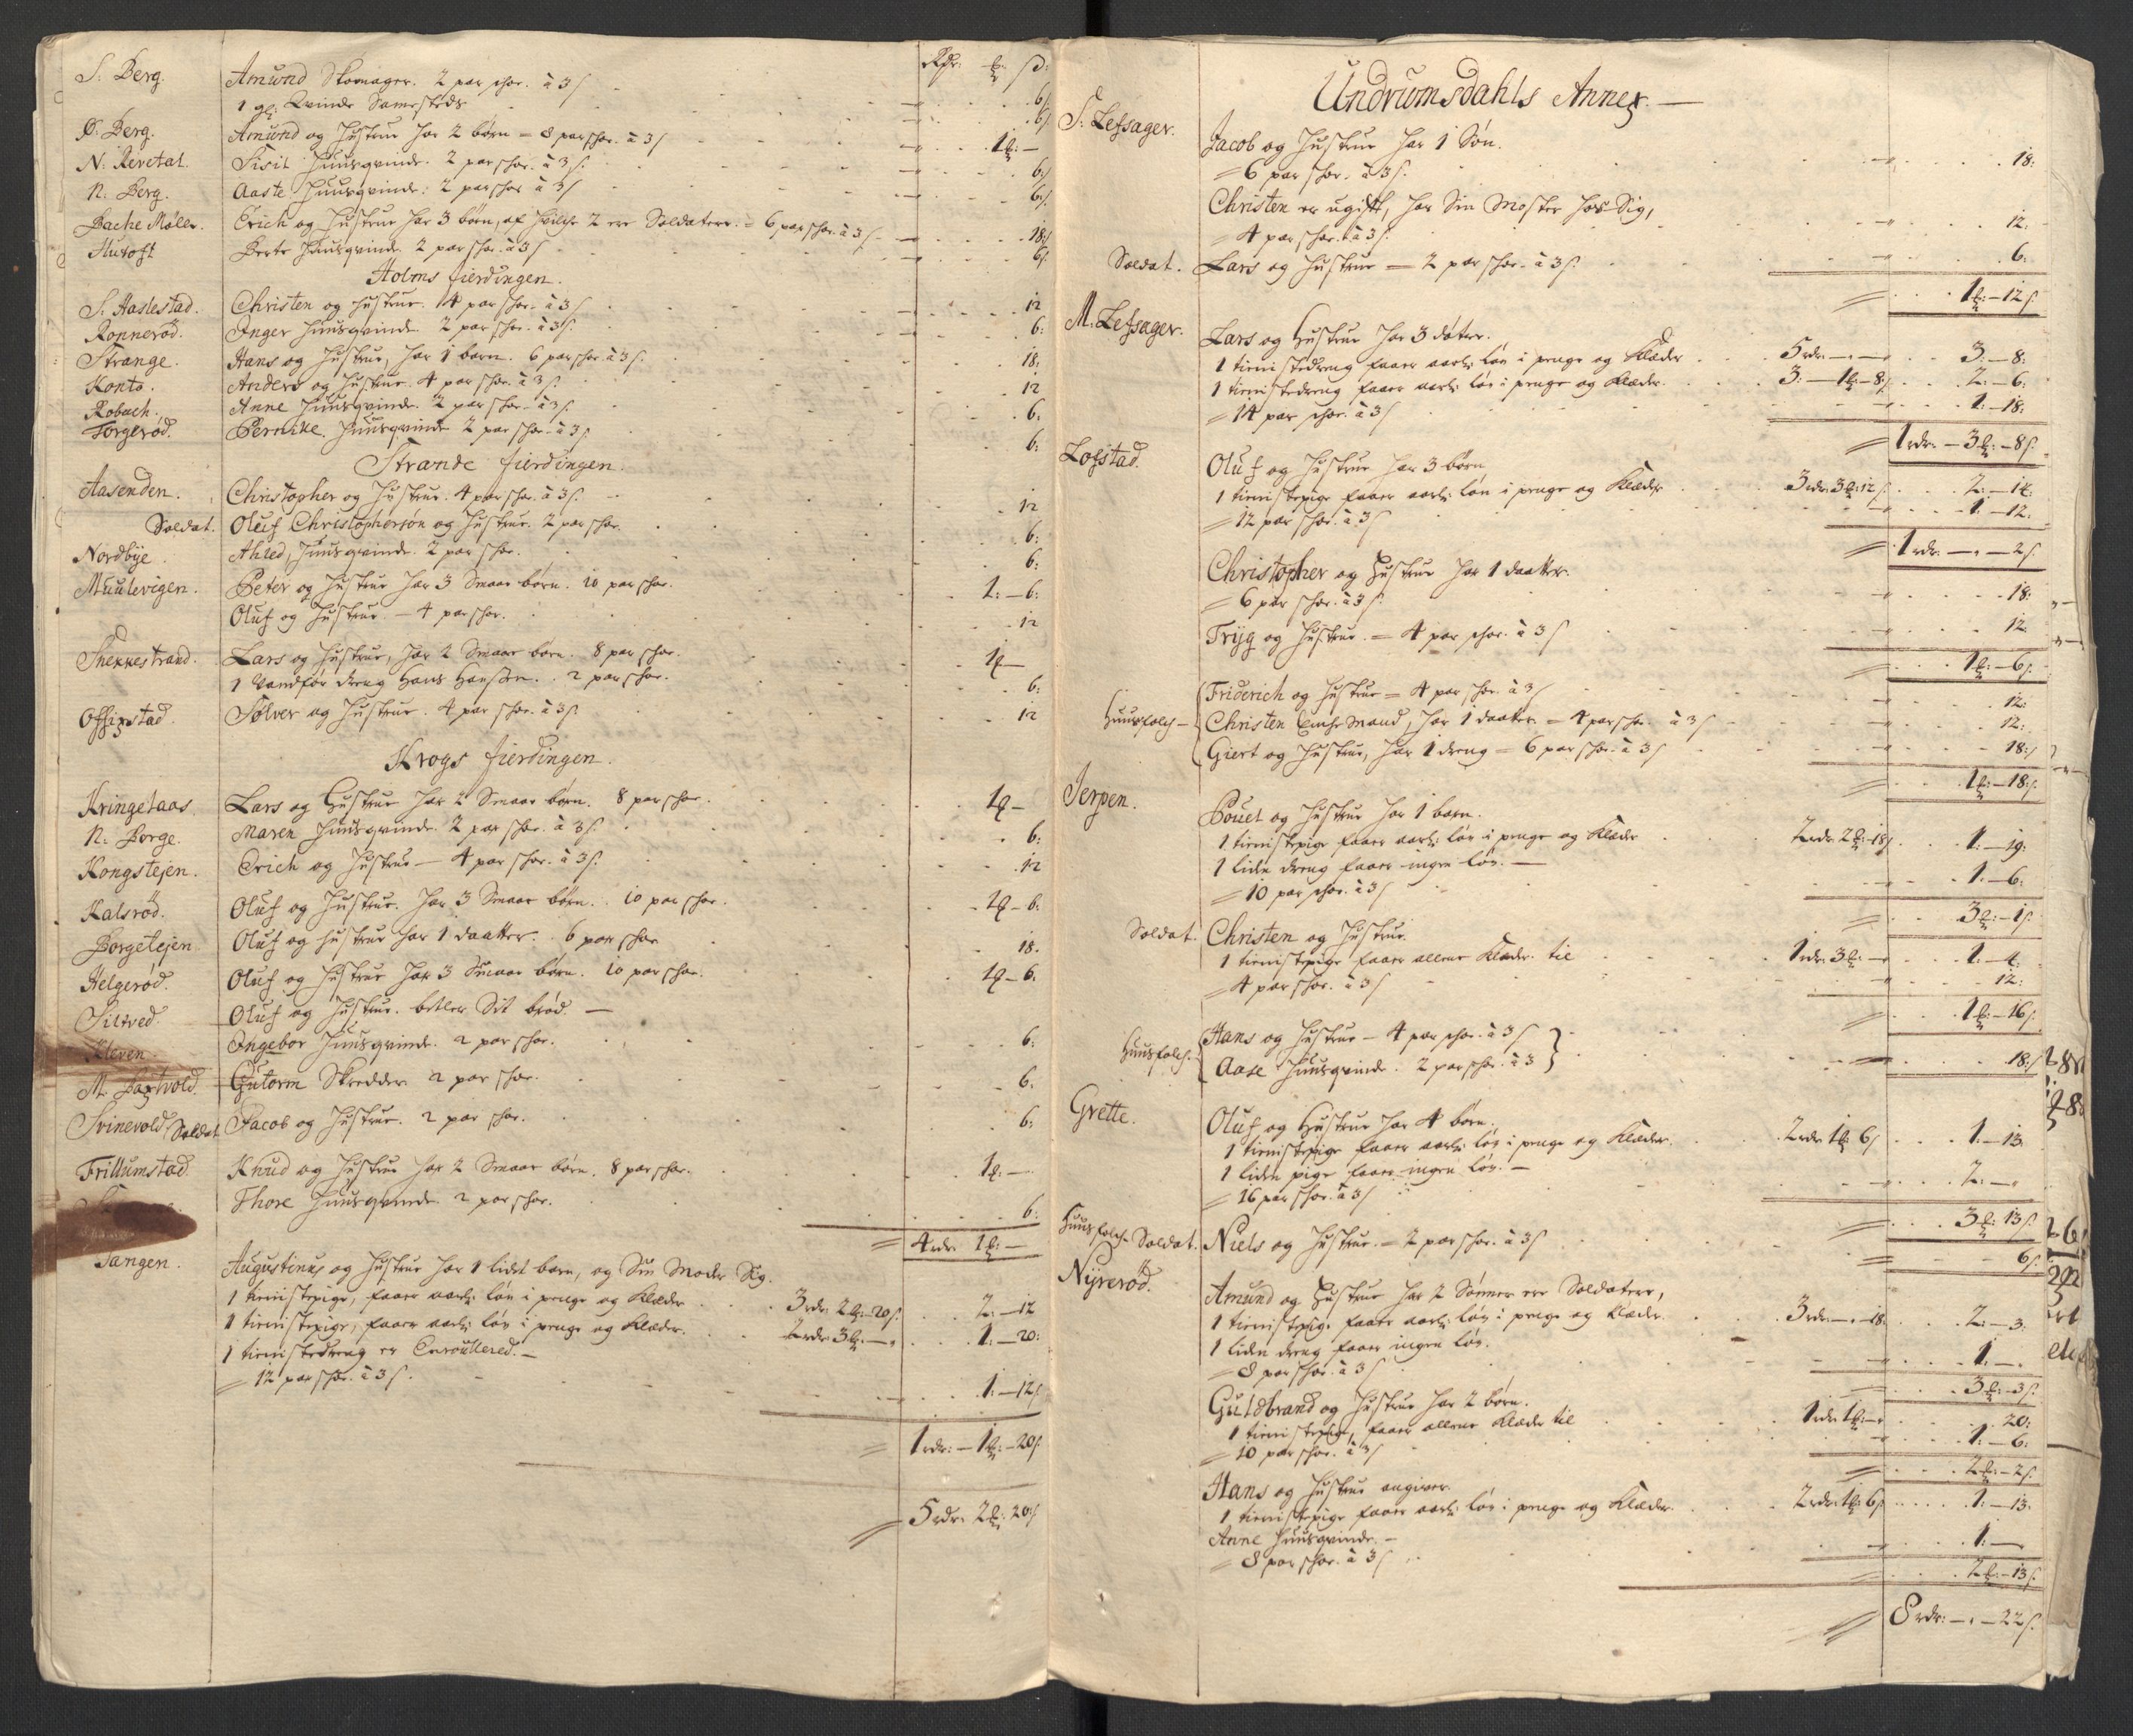 Rdr: ℔ ß:
S: Berg. Amund Skomager. 2 par schoe. à 3 ß 6 ß
1 gl: Qvinde Sammesteds 6 ß
Ø: Berg. Amund og Hustrue har 2 børn = 8 par schoe. à 3 ß 1 ℔: —
N: Revetal. Sisil Huusqvinde. 2 par schoe. à 3 ß: 6 ß
N: Berg. Aaste Huusqvinde: 2 par schoe à 3 ß 6 ß
Bache Møller. Erich og Hustrue har 3 børn, af hvilche 2 ere Soldatere. = 6 par schoe. à 3 ß 18 ß
Hutoft Berte Huusqvinde 2 par schoe. à 3 ß 6 ß
Holms fierdingen.
S. Haslestad. Christen og Hustrue. 4 par schoe. à 3 ß 12
Ronnerød. Inger Huusqvinde 2 par schoe. à 3 ß. 6:
Strange. Hans og Hustrue, har 1 barn. 6 par schoe. à 3 ß. 18:
Konto. Anders og Hustrue. 4 par schoe. à 3 ß. 12
Robach. Anne Huusqvinde. 2 par schoe. à 3 ß. 6:
Torgerød. Pernille Huusqvinde 2 par schoe. à 3 ß 6:
Strande fierdingen.
Aasenden. Christopher og Hustrue. 4 par schoe. à 3 ß. 12
Soldat. Oluf Christophersøn og Hustrue. 2 par schoe. 6:
Nordbye. Ahled, Huusqvinde. 2 par schoe. 6:
Muulevigen. Peter og Hustrue har 3 Smaae børn. 10 par schoe. 1: — 6:
Oluf og Hustrue. — 4 par schoe. 12
Snekkestrand. Lars og Hustrue, har 2 Smaae børn. 8 par schoe. 1 ℔ —
1 Vanfør dreng Hans Hansßen. 2 par schoe. 6:
Sølver og Hustrue. 4 par schoe. à 3 ß. 12
Krogs fierdingen.
Kringelaas Lars og Hustrue har 2 Smaae børn. 8 par schoe. 1 ℔ —
N: Borge. Maren Huusqvinde. 2 par schoe. à 3 ß. 6:
Kongstejen. Erich og Hustrue — 4 par schoe. à 3 ß. 12
Kalsrød. Oluf og Hustrue. har 3 Smaae børn. 10 par schoe. 1 ℔ — 6:
Borgetejen Oluf og Hustrue har 1 daatter. 6 par schoe 18.
Helgerød. Oluf og Hustrue har 3 Smaae børn. 10 par schoe. 1 ℔ — 6.
Siltved. Oluf og Hustrue. betler Sit brød. —
Kleven. Ingebor Huusqvinde. 2 par schoe. 6:
Gutorm Skredder 2 par schoe. 6:
Svinevold Soldat Jacob og Hustrue. 2 par schoe. 6:
Frillumstad Knud og Hustrue har 2 Smaae børn. 8 par schoe. 1 ℔: —
Thore Huusqvinde 2 par schoe. 6:
= 4 rdr 1 ℔: —
Tangen. Augustinus og Hustrue har 1 lidet barn, og Sin Moder Sig.
1 tienistepige, faaer aarl: løn i penge og Klæder 3 rdr 2 ℔: 20 ß. 2: — 12
1 tienistepige, faaer aarl: løn i penge og Klæder. 2 rdr 3 ℔. — 1: — 20:
1 tienistedreng er Enroulleret. —
= 12 par schoe. à 3 ß. 1: — 12 ß
= 1 rdr: — 1 ℔: — 20 ß.
= 5 rdr 2 ℔: 20 ß
Undrumsdahls Annex. —
S: Lefsager. Jacob og Hustrue har 1 Søn.
= 6 par schoe. à 3 ß. 18:
Christen er ugift, har Sin Moster hos Sig,
= 4 par schoe. à 3 ß. 12:
Soldat. Lars og Hustrue — 2 par schoe. à 3 ß. 6:
= 1 ℔: — 12 ß.
M. Lefsager. Lars og Hustrue har 3 døtre.
1 tienistedreng faaer aarl: løn i penge og Klæder 5 rdr. — 3: — 8:
1 tienistedreng faaer aarl: løn i penge og Klæder. 3: — 1 ℔: — 8 ß 2: — 6:
= 14 par schoe. à 3 ß 1: — 18:
= 1 rdr. — 3 ℔: — 8 ß.
Lofstad. Oluf og Hustrue har 3 børn
1 tienistepige faaer aarl: løn i penge og Klæder 3 rdr: 3 ℔: 12 ß 2: — 14:
= 12 par schoe. à 3 ß 1: — 12:
= 1 rdr. — „ — 2 ß
Christopher og Hustrue har 1 daatter.
= 6 par schoe. à 3 ß. 18:
Tryg og Hustrue. = 4 par schoe. à 3 ß 12
= 1 ℔: — 6 ß.
Huusfolch — Friderich og Hustrue = 4 par schoe. à 3 ß 12:
Christen Enche Mand, har 1 daatter = 4 par schoe. à 3 ß 12:
Giert og Hustrue, har 1 dreng = 6 par schoe. à 3 ß 18 ß
= 1 ℔: — 18 ß
Jerpen. Pouel og Hustrue har 1 barn.
1 tienistepige faaer aarl: løn i penge og Klæder 2 rdr 2 ℔: 18 ß 1: — 19:
1 liden dreng faaer ingen løn. —
= 10 par schoe. à 3 ß 1: — 6:
= 3 ℔: — 1 ß
Soldat. Christen og Hustrue.
1 tienistepige faaer allene Klæder til 1 rdr: 3 ℔: — 1: — 4:
= 4 par schoe. à 3 ß 12:
= 1 ℔: — 16 ß
Huusfolch. Hans og Hustrue — 4 par schoe. à 3 ß
Aase Huusqvinde. 2 par schoe. à 3 18 ß
Grette. Oluf og Hustrue har 4 børn.
1 tienistepige faaer aarl: løn i penge og Klæder. 2 rdr 1 ℔ 6 ß 1: — 13
1 liden pige faaer ingen løn. —
= 16 par schoe. à 3 ß 2: —
= 3 ℔: 13 ß.
Huusfolch Soldat. Niels og Hustrue. = 2 par schoe. à 3 ß
= 6 ß
Nyrerød. Amund og Hustrue har 2 Sønner ere Soldatere,
1 tienistepige faaer aarl: løn i penge og Klæder. 3 rdr: — „ — 18: 2: — 3:
1 liden dreng faaer ingen løn.
= 8 par schoe. à 3 ß 1: —
= 3 ℔: — 3 ß.
Guldbrand og Hustrue har 2 børn.
1 tienistepige, faaer allene Klæder til 1 rdr 1 ℔: — 20:
= 10 par schoe. à 3 ß 1: — 6:
= 2 ℔: — 2 ß.
Hans og Hustrue angiver.
1 tienistepige faaer aarl: løn i penge og Klæder. 2 rdr: 1 ℔: 6 ß 1: — 13.
Anne Huusqvinde. —
= 8 par schoe. à 3 ß 1: —
= 2 ℔: — 13 ß.
= 8 rdr: — „ — 22 ß.